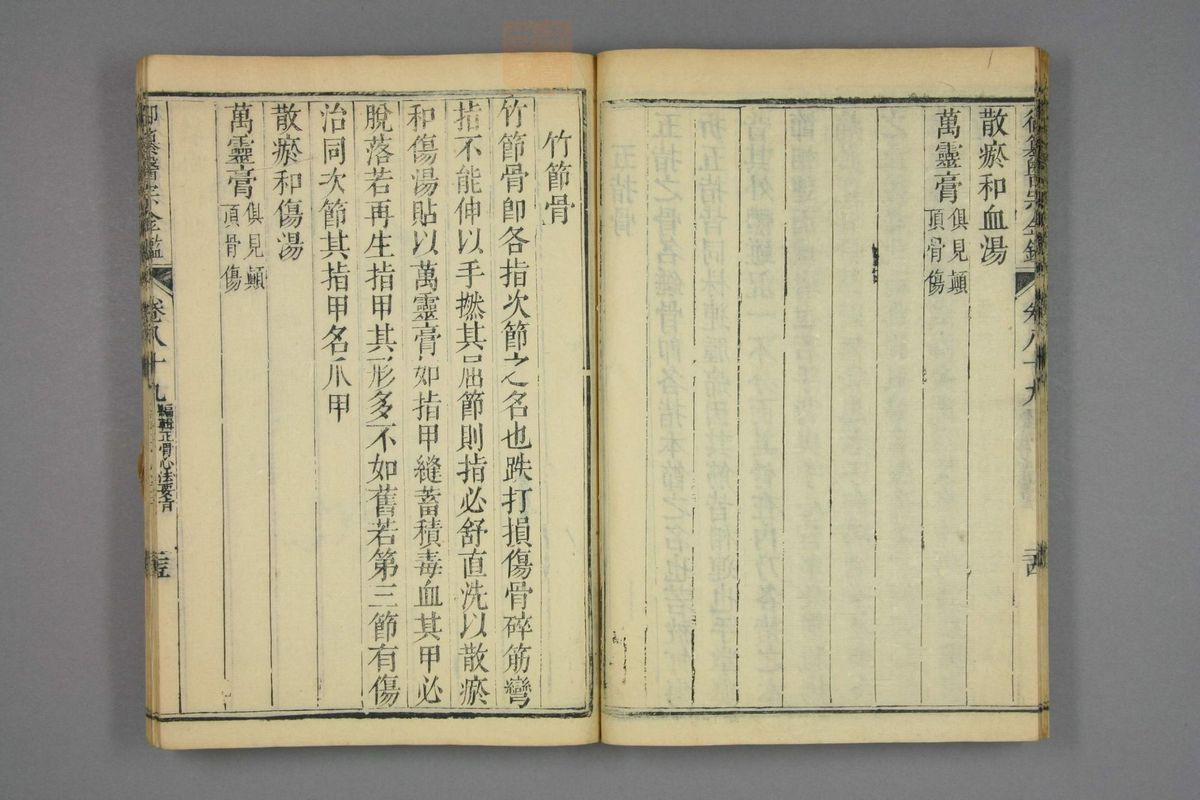 散瘀和血湯
萬靈膏俱見顚
頂骨傷
卷八十九
竹節骨
竹節骨卽各指次節之名也跌打損傷骨碎筋彎
指不能伸以手撚其屈節則指必舒直洗以散瘀
和傷湯貼以萬靈膏如指甲縫蓄積毒血其甲必
脫落若再生指甲其形多不如舊若第三節有傷
治同次節其指甲名爪甲
散瘀和傷湯
萬靈膏俱見顚
頂骨傷
御纂醫宗金鑑
卷八十九
編輯正骨心法要旨